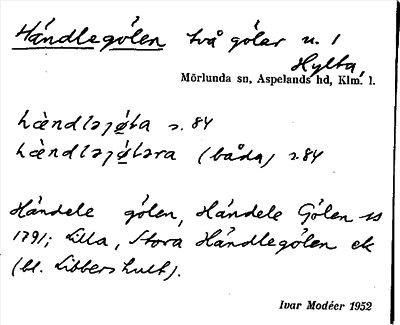 Händlegölen två gölar n. 1
Hylta,
Mörlunda sn, Aspelands hd, Klm. l.
hàndləjø̀ta s. 84
hàndləjø̀təra (båda) s. 84
Händele gölen, Händele Gölen ss
1791; Lilla, Stora Händlegölen ek
(bl. Libbershult).
Ivar Modéer 1952